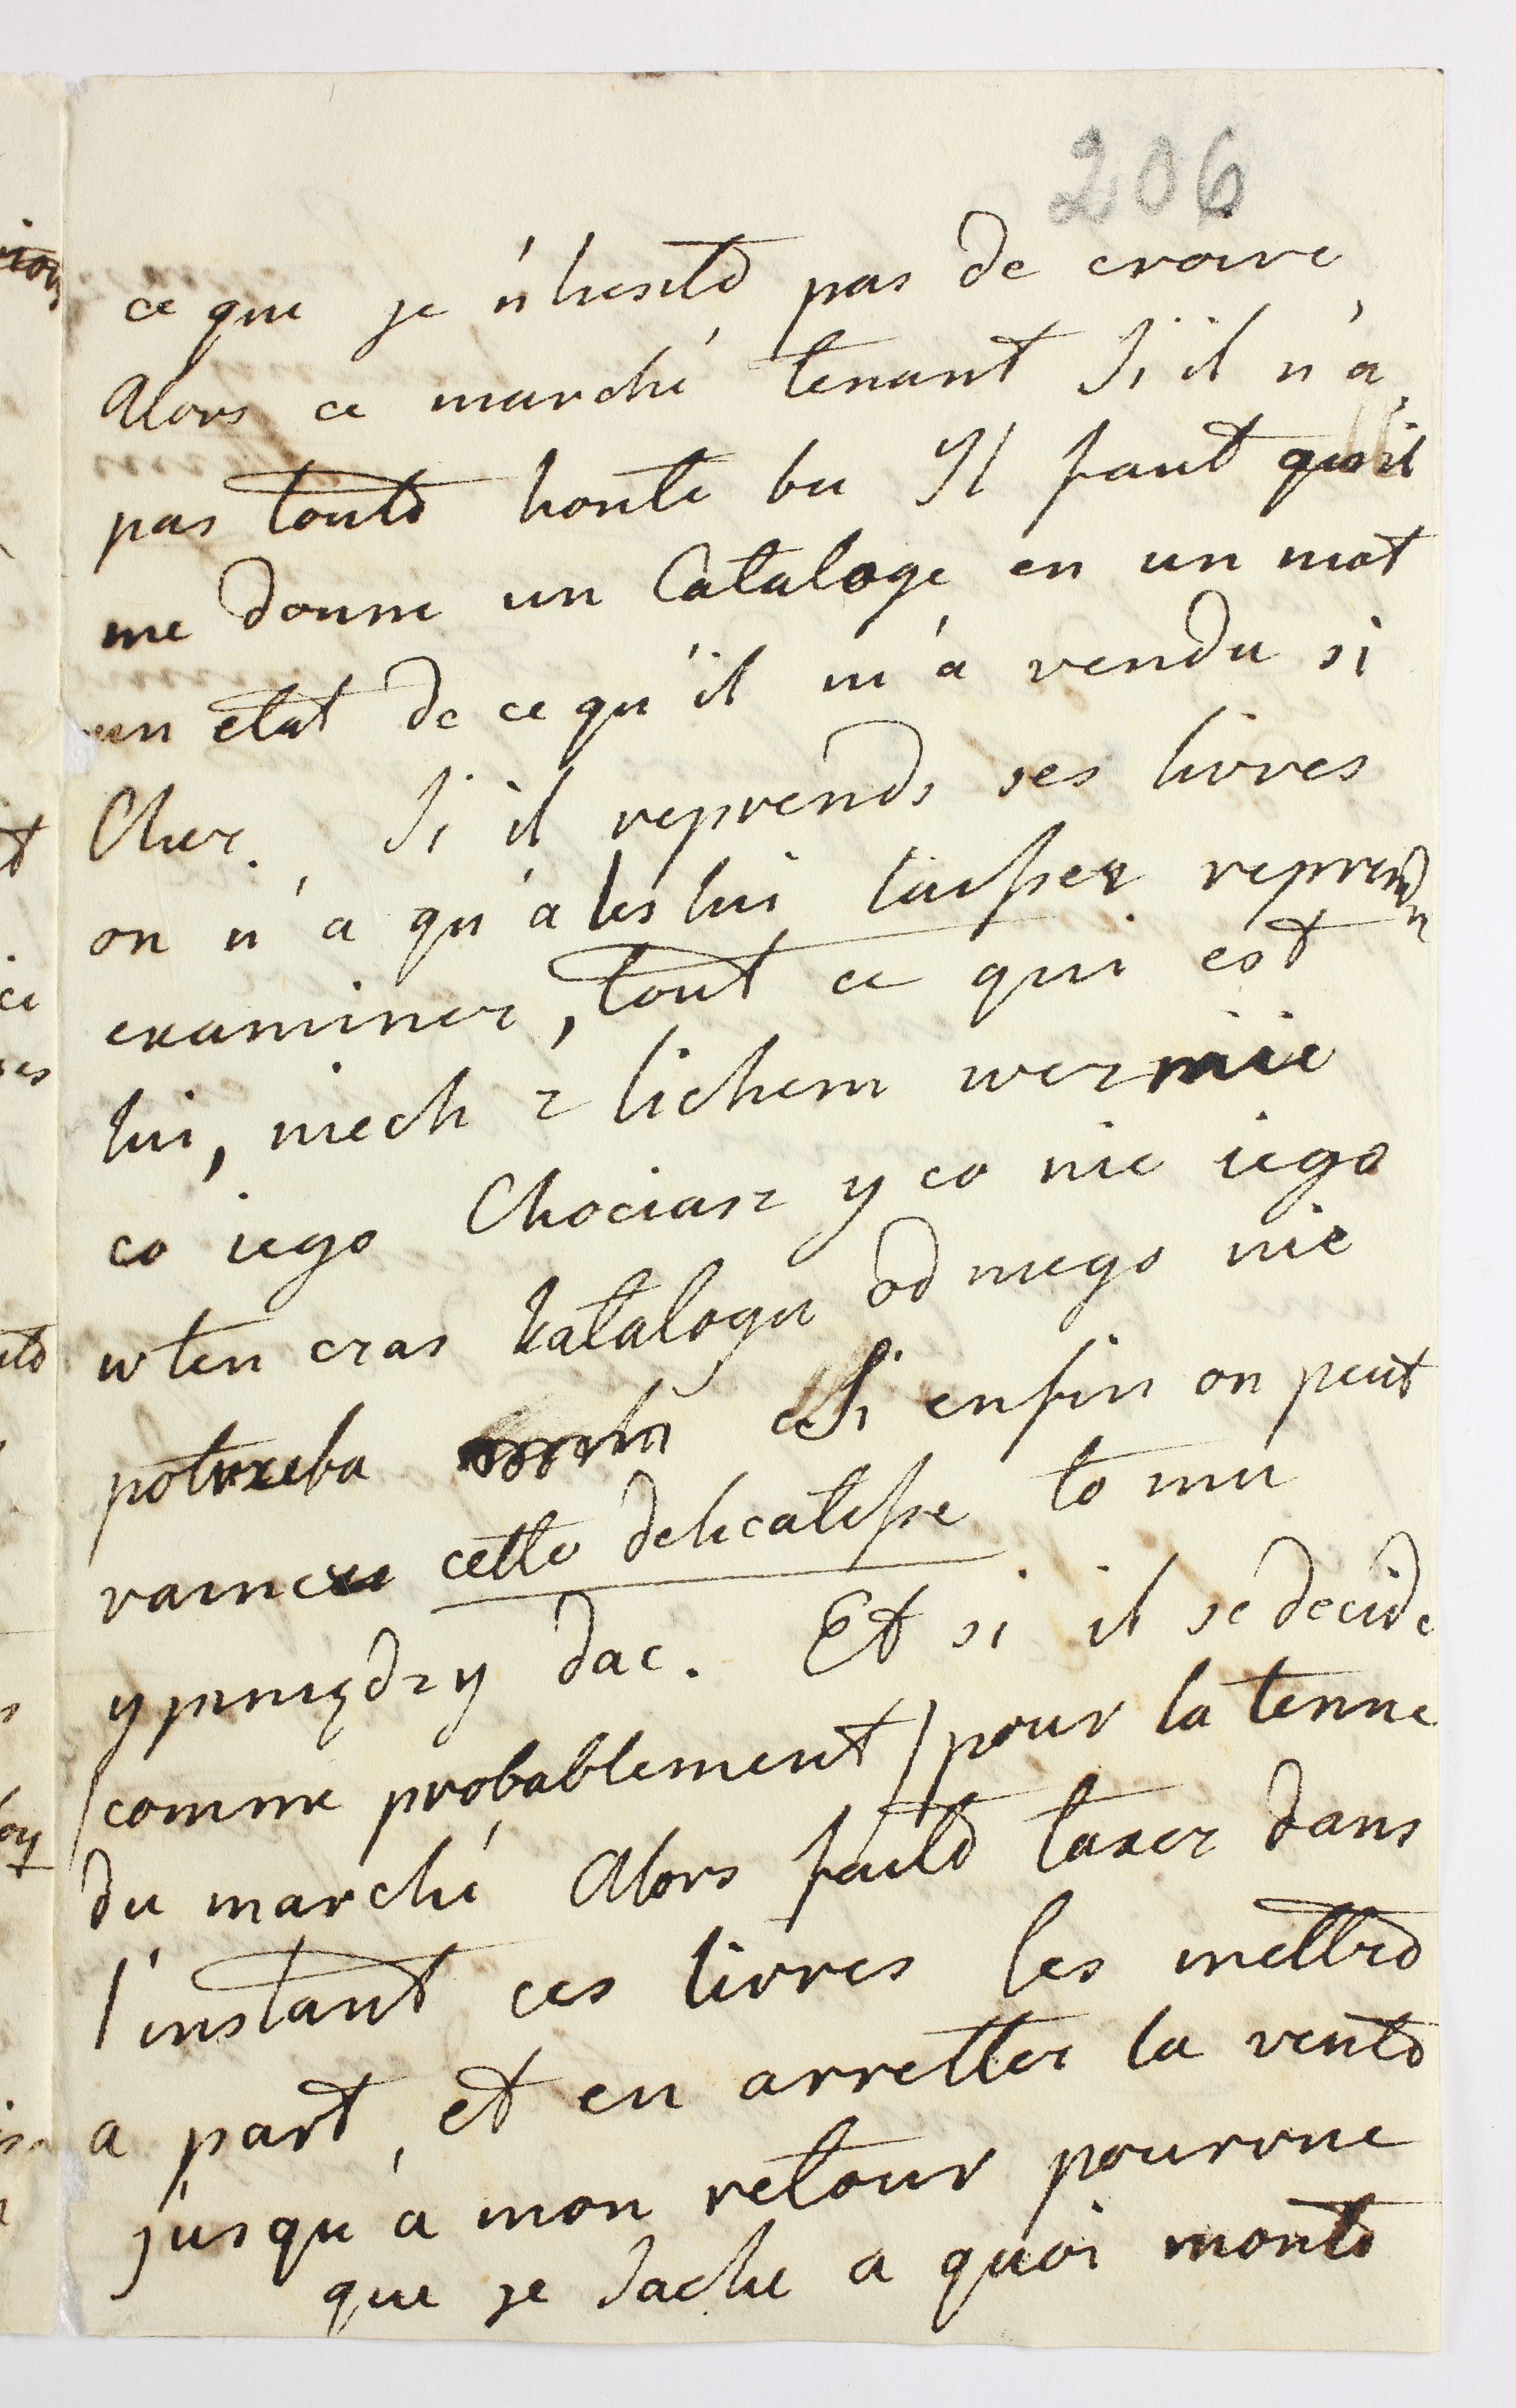 206
ce que je n'hesite pas de croire,
Alors ce marché tenant Si il n'a
pas toute honte bu Il faut qu'il
me donne un Cataloge en un mot
un etat de ce qu'il m'a vendu si
Cher. Si il reprends ses livres
on n'a qu'a les lui laisser reprendre
examiner, tout ce qui est
lui, niech z lichem wezmie
co iego Chociasz y co nie iego
wten czas katalogu od niego nie
potrzeba Si enfin on peut
vaincre cette delicatesse to mu
y pieniędzy dac. Et si il se decide
(comme probablement) pour la tenue
du marché Alors faite taxer dans
l'instant ces livres les mettre
a part, et en arretter la vente
jusqu'a mon retour pourvue
que je sache a quoi monte